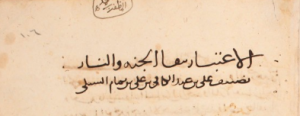 ١٠٦
الاعتبار ببقا الجنه والنار
تصنيف علي بن عبد الكافي بن علي بن تمام السبكي